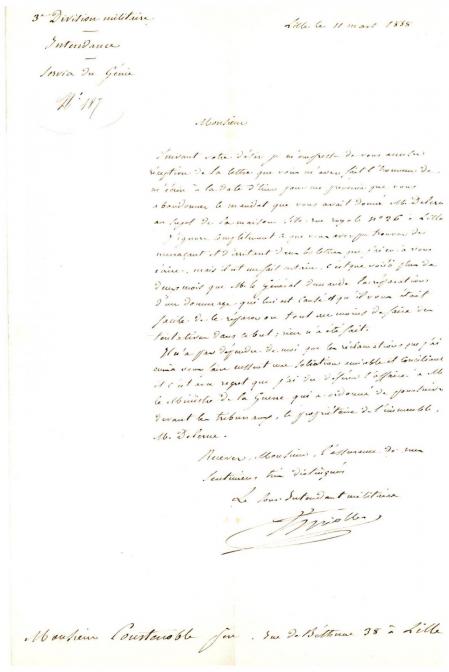 3e Division militaire
Lille le 11 mars 1858
Intendance
Service du Génie
N° 187
Monsieur
Suivant votre désir je m'empresse de vous accuser
réception de la lettre que vous m'avez fait l'honneur de
m'écrire à la date d'hier pour me prévenir que vous
abandonnez le mandat que vous avait donné M. Delerue
au sujet de la maison sise rue royale n° 26 à Lille
J'ignore complètement ce que vous avez pu trouver de
menaçant et d'irritant dans les lettres que j'ai eu à vous
écrire, mais tout un fait notoire, c'est que voilà plus de
deux mois que M. le Général demande la réparation
d'un dommage qui lui est causé et qu'il vous était
facile de le réparer ou tout au moins de faire des
tentatives dans ce but; rien n'a été fait.
Il n'a pas dépendu de moi que les réclamations que j'ai
à vous faire eussent une solution amiable et
et c'est avec regret que j'ai dû déférer l'affaire à M.
le Ministre de la Guerre qui a ordonné de poursuivre
devant les tribunaux, le propriétaire de l'immeuble,
M. Delerue.
Recevez, Monsieur, l'assurance de mes
sentiments très distingués
Le Sous Intendant militaire
Monsieur Constenoble fere, rue de Béthune 38 à Lille